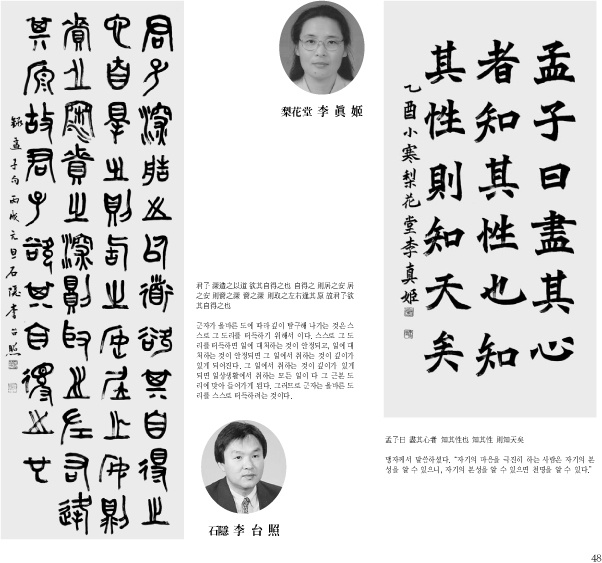 孟子曰盡其心
者知其性也知
其性則知天矣
乙酉小寒梨花堂李真姬
梨花堂 李眞姬
孟子曰 盡其心者 知其性也 知其性 則知天矣
맹자께서 말씀하셨다. "자기의 마음을 극진히 하는 사람은 자기의 본
성을 알 수 있으니, 자기의 본성을 알 수 있으면 천명을 알 수 있다."
君子深造之以道欲其自得之
也自得之則居之安居之安則
資之深資之深則取之左右逢
其原故君子欲其自得之也
錄孟子句 丙戌元旦石隱李台照
君子 深造之以道 欲其自得之也 自得之 則居之安 居
之安 則資之深 資之深 則取之左右逢其原 故君子欲
其自得之也
군자가 올바른 도에 따라 깊이 탐구해 나가는 것은 스
스로 그 도리를 터득하기 위해서 이다. 스스로 그 도
리를 터득하면 일에 대처하는 것이 안정되고, 일에 대
처하는 것이 안정되면 그 일에서 취하는 것이 깊이가
있게 되어진다. 그 일에서 취하는 것이 깊이가 있게
되면 일상생활에서 취하는 모든 일이 다 그 근본 도
리에 맞아 들어가게 된다. 그러므로 군자는 올바른 도
리를 스스로 터득하려는 것이다.
石隱 李台照
48